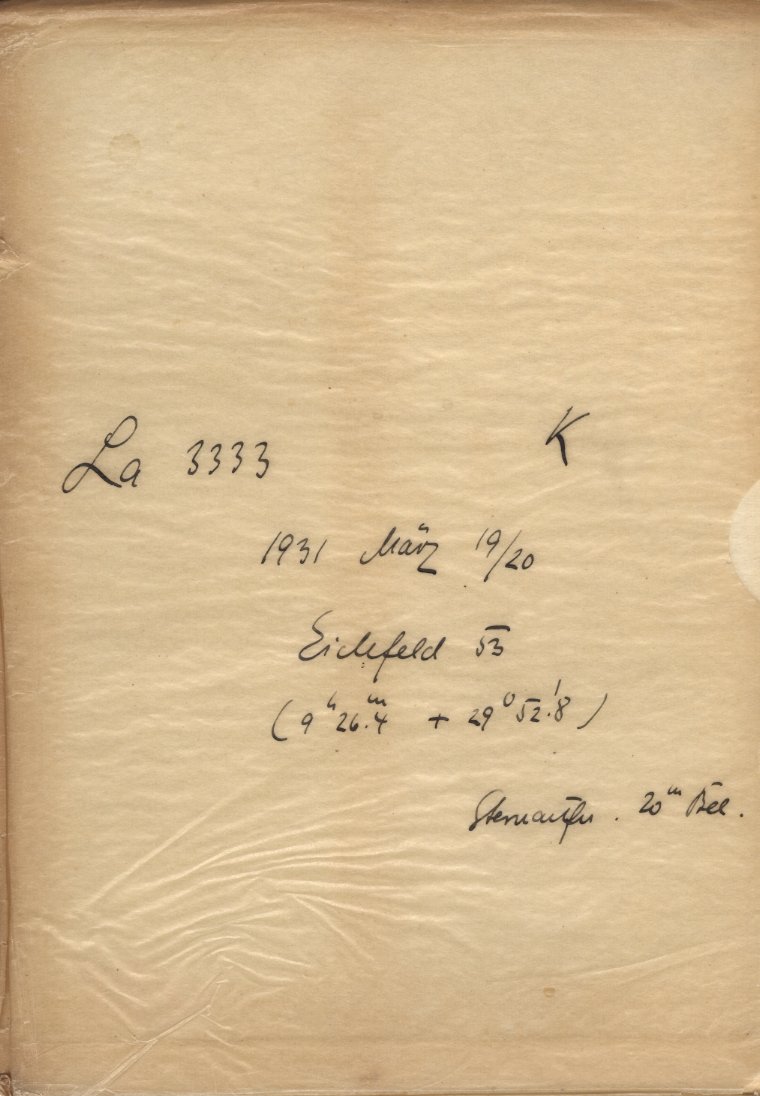 La 3333 K
1931 März 19/20
Eichfeld 53
(9ʰ 26.ᵐ4 + 29⁰ 52.'8)
Sternaufn. 20ᵐ Bel.